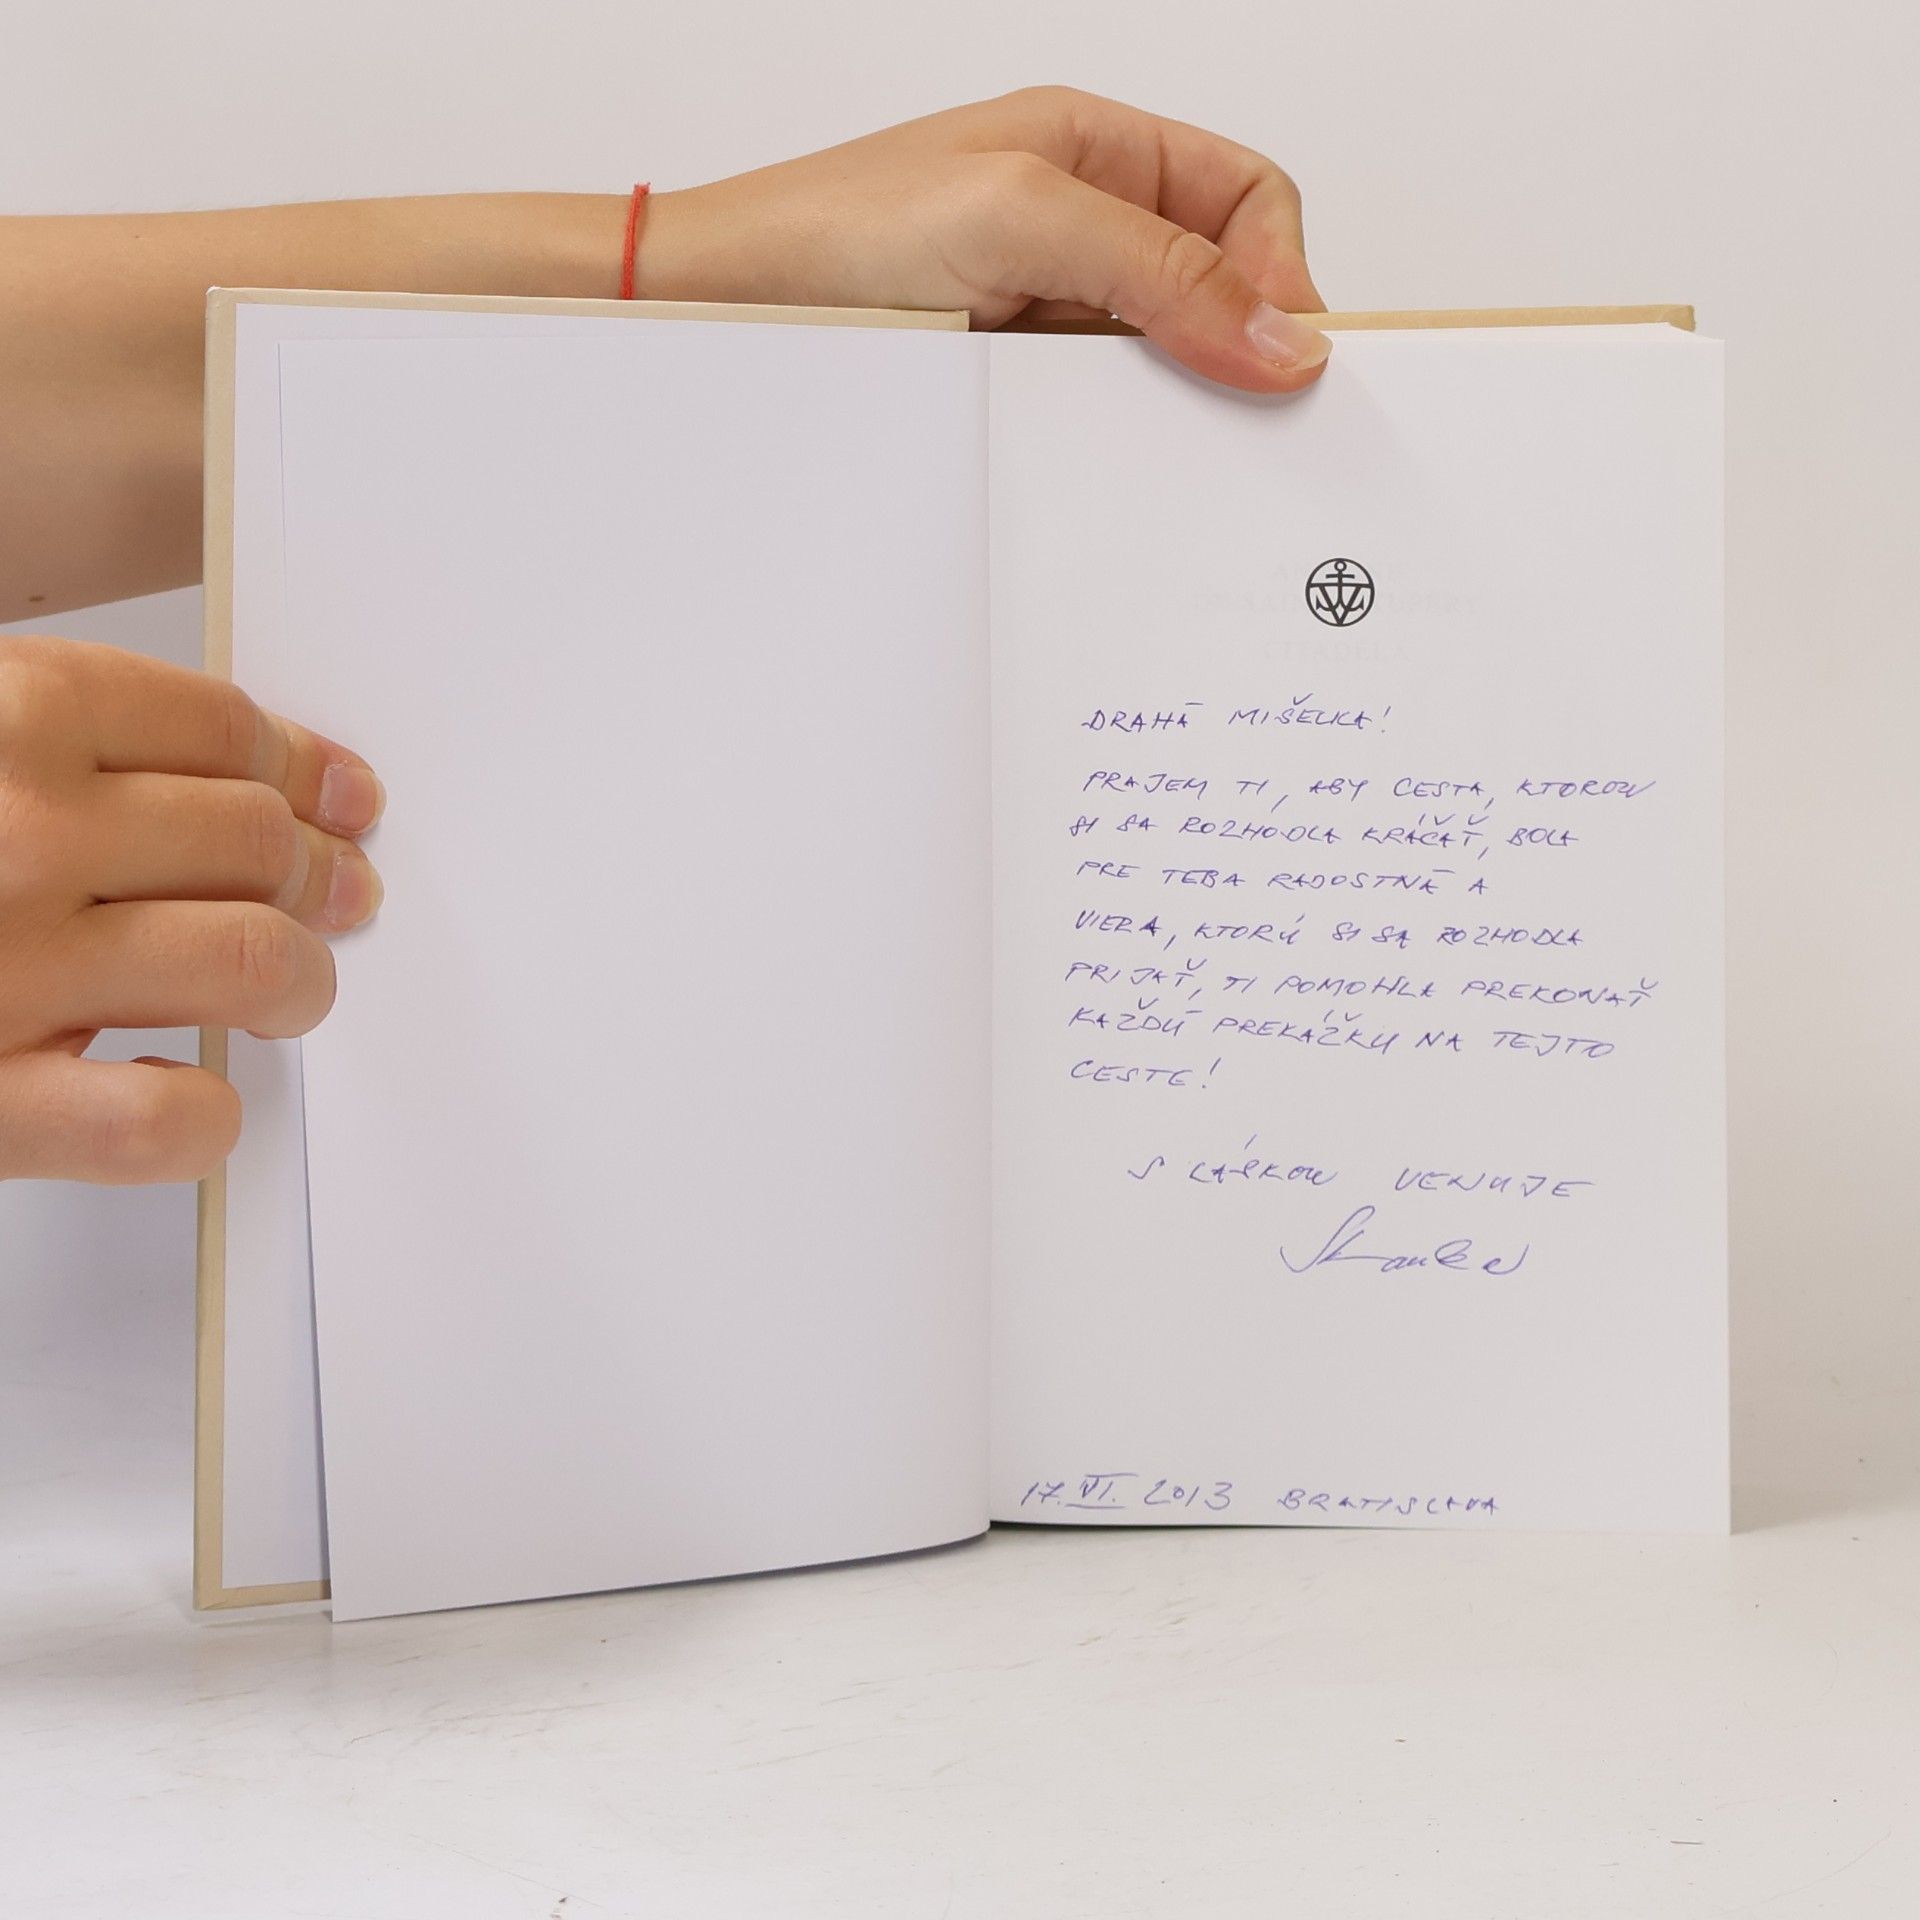 DRAHÁ MIŠELKA!
PRAJEM TI, ABY CESTA, KTOROU
SI SA ROZHODLA KRÁČAŤ, BOLA
PRE TEBA RADOSTNÁ A
VIERA, KTORÚ SI SA ROZHODLA
PRIJAŤ, TI POMOHLA PREKONAŤ
KAŽDÚ PREKÁŽKU NA TEJTO
CESTE!
S LÁSKOU VENUJE
17. VI. 2013 BRATISLAVA